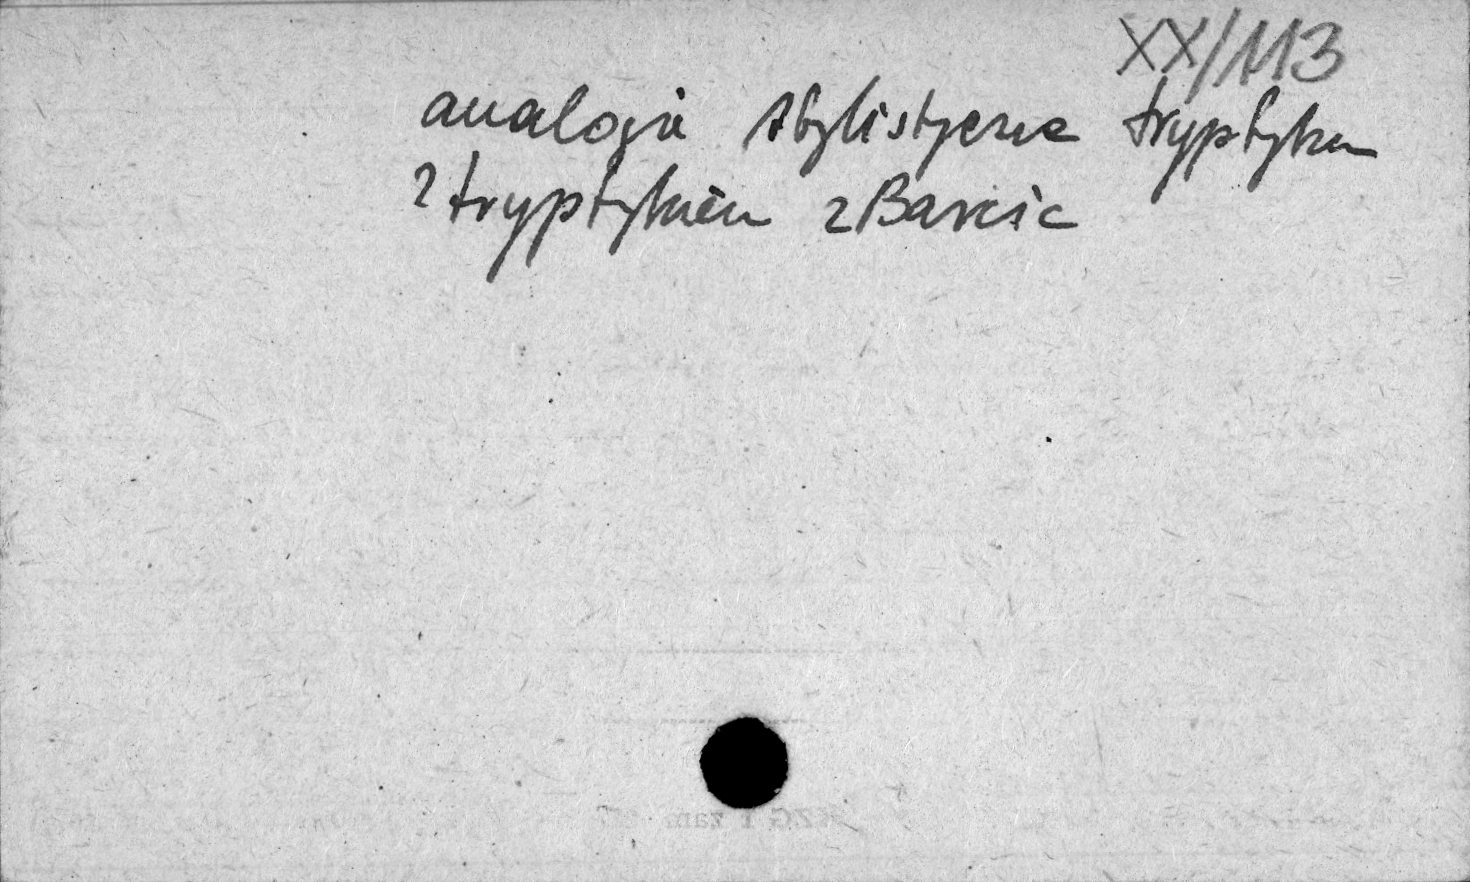 XX/113
analogia stylistyczne tryptyku
z tryptykiem z Barcic